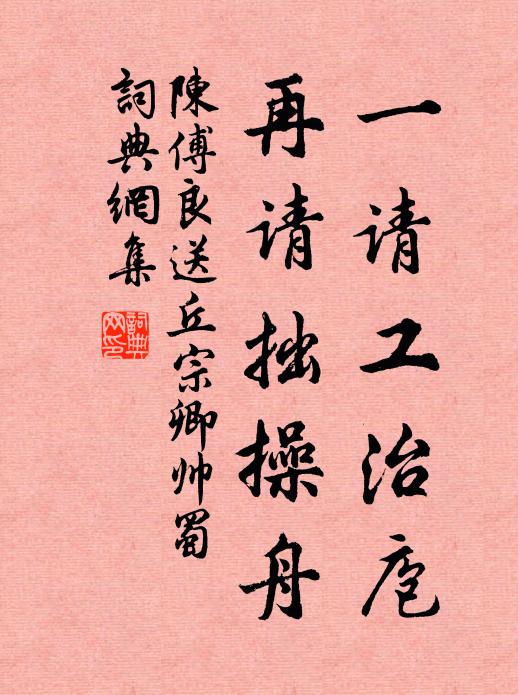 一请工治庖
再请拙操舟
陳傅良送丘宗卿帅蜀
詞典網集
詞典網印